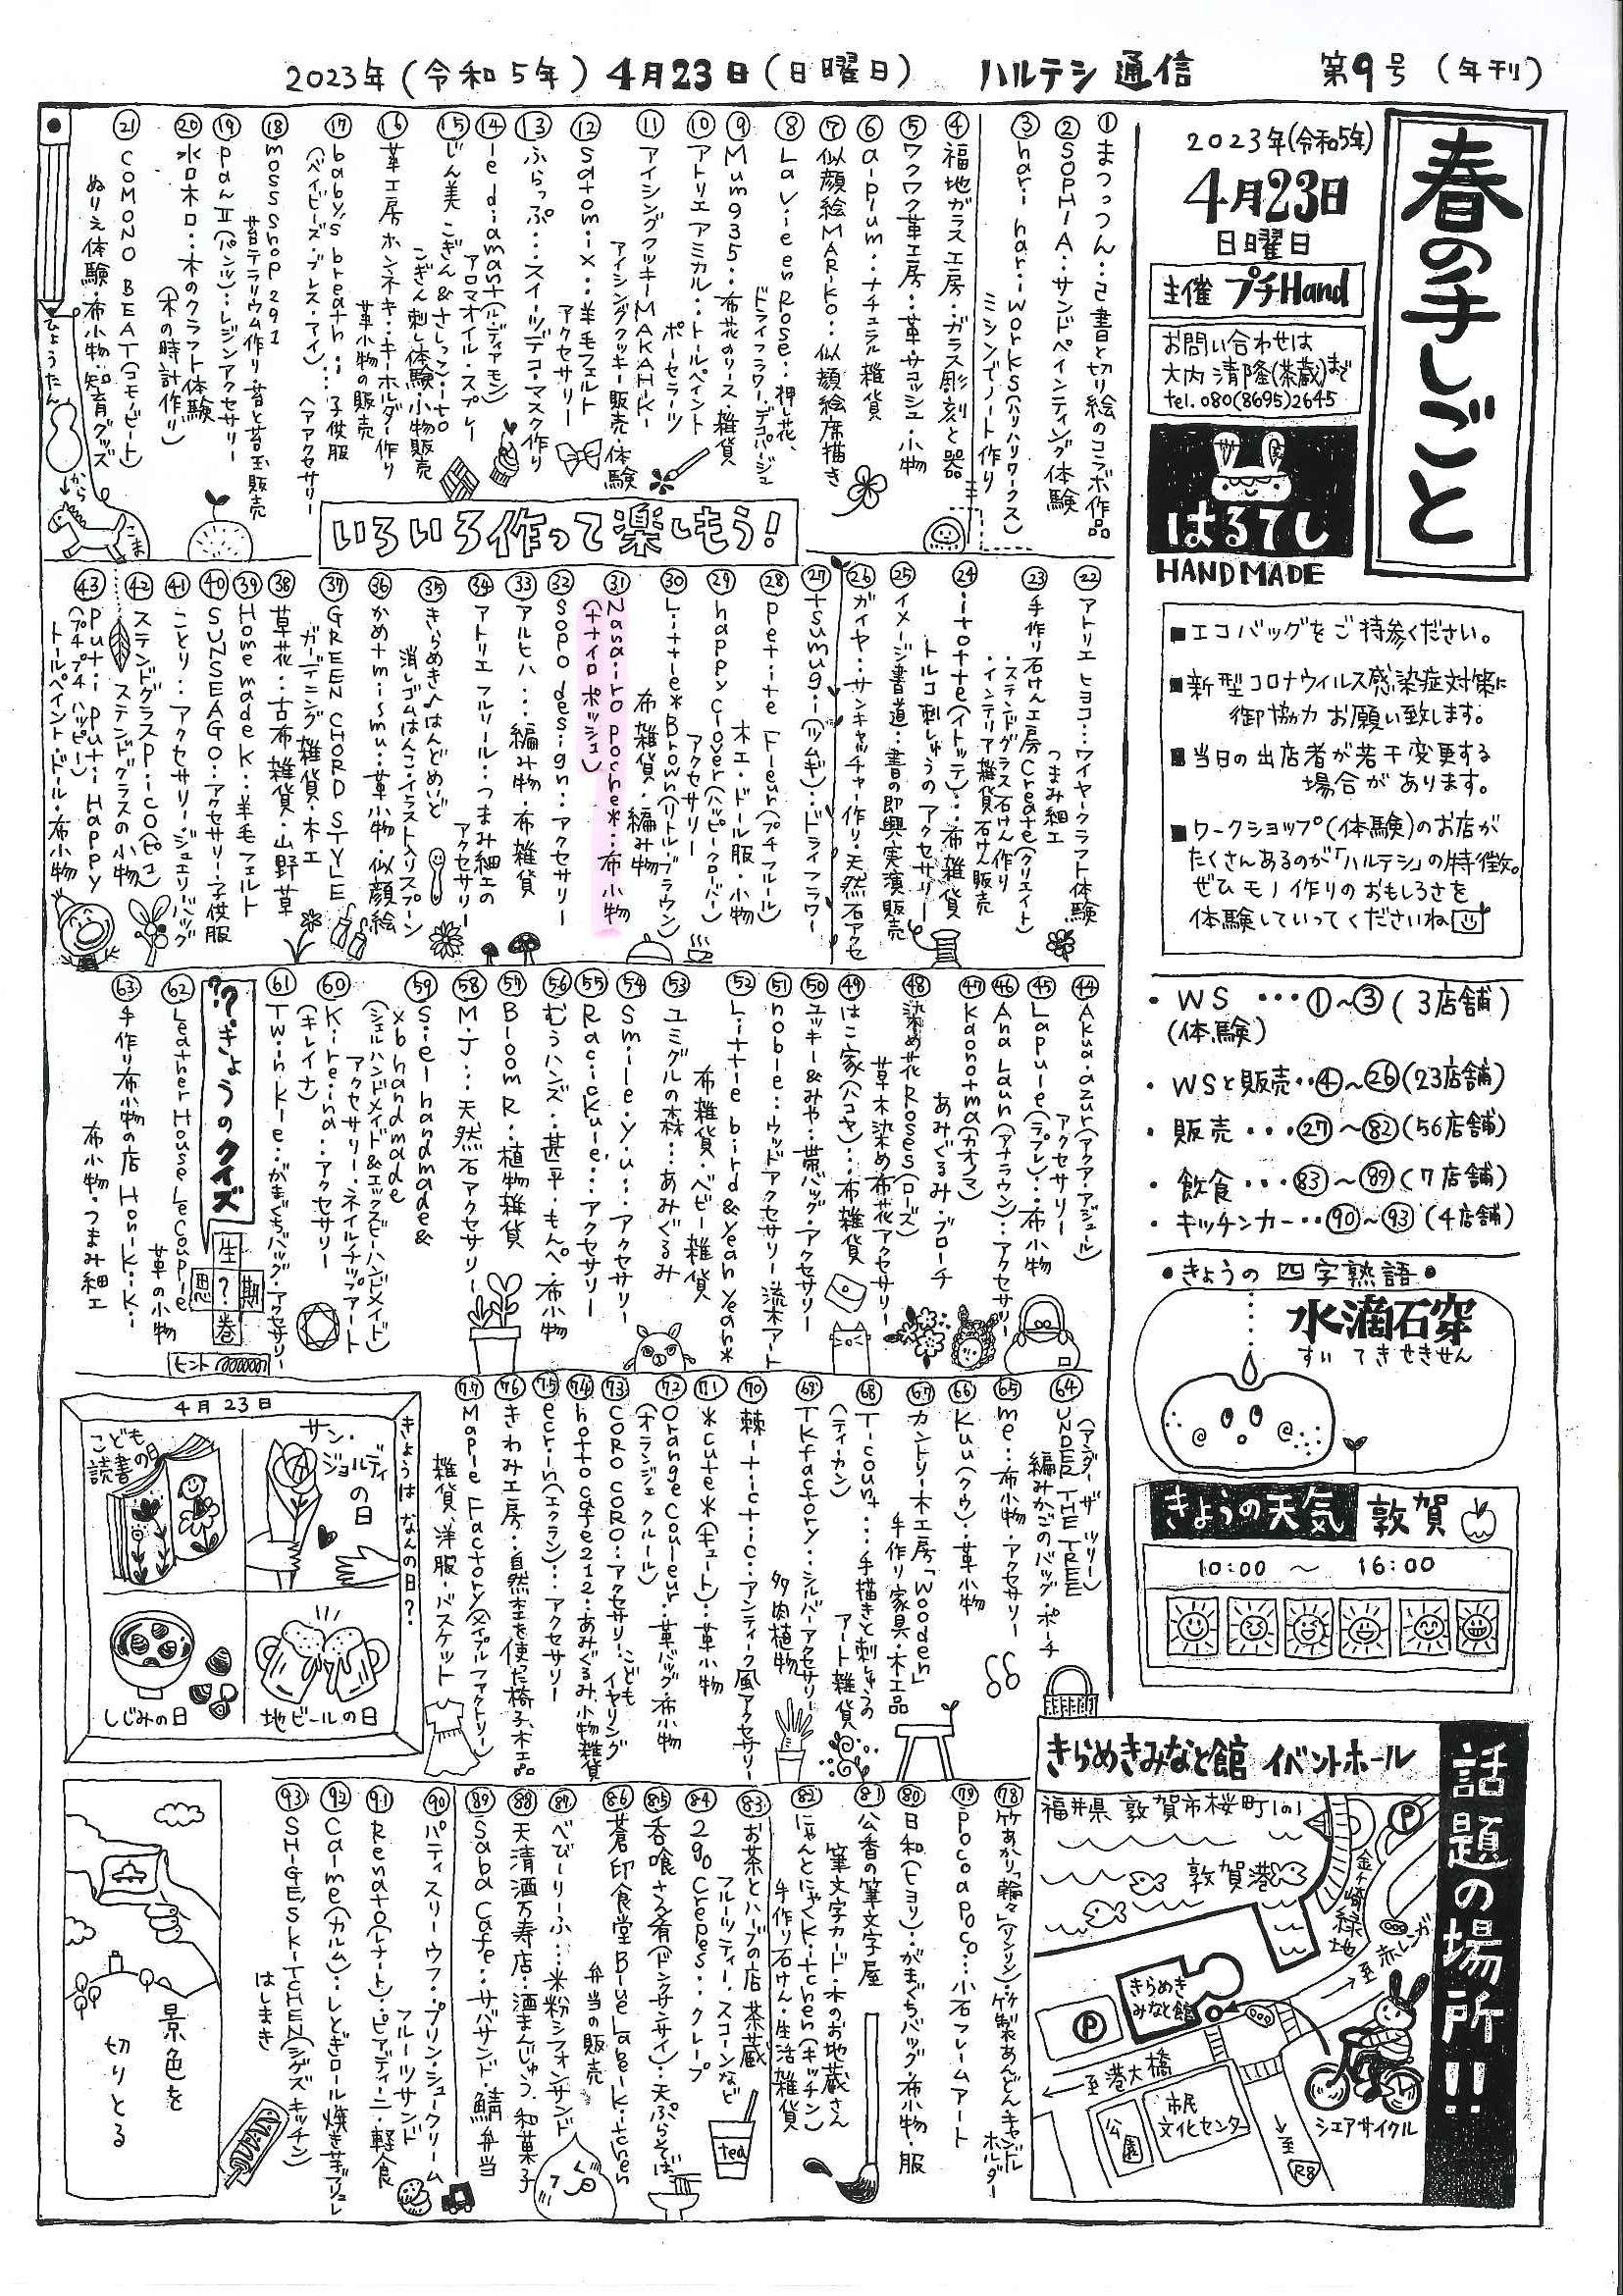 2023年(令和5年)4月23日(日曜日) ハルテシ通信 第9号(年刊)
春の手しごと
2023年(令和5年)
4月23日
日曜日
主催 プチHand
お問い合わせは
大内 清隆(茶蔵)まで
tel.080(8695)2645
はるてし
HANDMADE
■エコバッグをご持参ください。
■新型コロナウイルス感染症対策に
御協力お願い致します。
■当日の出店者が若干変更する
場合があります。
■ワークショップ(体験)のお店が
たくさんあるのが「ハルテシ」の特徴。
ぜひモノ作りのおもしろさを
体験していってくださいね
・WS ・・・①〜③(3店舗)
(体験)
・WSと販売・・④〜㉖(23店舗)
・販売・・・㉗〜82(56店舗)
・飲食・・・83〜89(7店舗)
・キッチンカー・・90〜93(4店舗)
・きょうの四字熟語・
水滴石穿
すい てき せき せん
きょうの天気 敦賀
10:00 〜 16:00
話題の場所!!
きらめきみなと館 イベントホール
福井県敦賀市桜町1の1
P
敦賀港
金ヶ崎緑地
→至赤レンガ
きらめき
みなと館
P
←至港大橋
公園
市民
文化センター
→至
R8
シェアサイクル
①まっつん・・己書と切り絵のコラボ作品
②SOPHIA・・サンドペインティング体験
③hari hari works(ハリハリワークス)
ミシンでノート作り
④福地ガラス工房・・ガラス彫刻と器
⑤ワクワク革工房・・革サコッシュ・小物
⑥a-plum・・ナチュラル雑貨
⑦似顔絵MARIKO・・似顔絵席描き
⑧La Vie en Rose・・押し花、
ドライフラワー、デコパージュ
⑨Mum935・・布花のリース・雑貨
⑩アトリエアミカル・・トールペイント
ポーセラーツ
⑪アイシングクッキーMAKAHIKI
アイシングクッキー販売・体験
⑫satomix・・羊毛フェルト
アクセサリー
⑬ふらっぷ・・・スイーツデコ・マスク作り
⑭le diamant(ルディアモン)
アロマオイル・スプレー
⑮じん美 こぎん&さしっこ・ito
こぎん刺し体験・小物販売
⑯革工房ホンネキ・・キーホルダー作り
革小物の販売
⑰baby's breath・・・子供服
(ベイビーズ・ブレス・アイ)・・・ヘアアクセサリー
⑱moss shop 291
苔テラリウム作り・苔と苔玉販売
⑲panⅡ(パンツ)・・レジンアクセサリー
⑳水口木口・・・木のクラフト体験
(木の時計作り)
㉑COMONO BEAT(コモノビート)
ぬりえ体験・布小物・知育グッズ
ひょうたん
から
こま
いろいろ作って楽しもう!
㉒アトリエヒヨコ・・ワイヤークラフト体験
つまみ細工
㉓手作り石けん工房Create(クリエイト)
・ステンドグラス石けん作り
・インテリア雑貨石けん販売
㉔itotte(イトッテ)・・布雑貨
トルコ刺しゅうのアクセサリー
㉕イメージ書道・・書の即興実演販売
㉖ガイヤ・・サンキャッチャー作り・天然石アクセ
㉗tsumugi(ツムギ)・・ドライフラワー
㉘petite Fleur(プチフルール)
木工・ドール服・小物
㉙happy clover(ハッピークローバー)
アクセサリー
㉚Little*Brown(リトル・ブラウン)
布雑貨・編み物
㉛Nanairo poche*・・布小物
(ナナイロポッシュ)
㉜sopo design・・アクセサリー
㉝アルヒハ・・・編み物・布雑貨
㉞アトリエフルリール・・つまみ細工の
アクセサリー
㉟きらめき♪はんどめいど
消しゴムはんこ・イラスト入りスプーン
㊱かめtmismu・・革小物・似顔絵
㊲GREEN CHORD STYLE
ガーデニング雑貨・木工
㊳草花・・古布雑貨・山野草
㊴Home made K・・羊毛フェルト
㊵SUNSEAGO・・アクセサリー・子供服
㊶ことり・・アクセサリー・ジェリバッグ
㊷ステンドグラスPiCO(ピコ)
ステンドグラスの小物
㊸Puti Puti Happy
(プチプチハッピー)
トールペイント・ドール・布小物
㊹Akua・azur(アクア・アジュール)
アクセサリー
㊺Lapule(ラプレ)・・布小物
㊻Ana Laun(アナラウン)・・アクセサリー
㊼kaonoma(カオノマ)
あみぐるみ・ブローチ
㊽染め花Roses(ローズ)
草木染め布花アクセサリー
㊾はこ家(ハコヤ)・・・布雑貨
㊿ユッキー&みや・・帯バッグ・アクセサリー
51 noble・・ウッドアクセサリー・流木アート
52 Little bird&Yeah Yeah*
布雑貨・ベビー雑貨
53 ユミグルの森・・・あみぐるみ
54 Smile・Y・u・・・アクセサリー
55 Racickule・・・アクセサリー
56 むぅハンズ・・甚平・もんペ・布小物
57 Bloom R・・植物雑貨
58 M・J・・・天然石アクセサリー
59 Siel handmade&
xb handmade
(シエルハンドメイド&エックスビーハンドメイド)
アクセサリー・ネイルチップアート
60 Kireina・・アクセサリー
(キレイナ)
61 Twinkle・・がまぐちバッグ・アクセサリー
??きょうのクイズ
生
恩?期
巻
ヒント
62 Leather House Le Couple
革の小物
63 手作り布小物の店 Honi.K.K.
布小物・つまみ細工
64 UNDER THE TREE
(アンダー ザ ツリー)
編みかごのバッグ・ポーチ
65 me・・布小物・アクセサリー
66 Kuu(クウ)・・革小物
67 カントリー木工房「Wooden」
手作り家具・木工品
68 T-count・・・手描きと刺しゅうの
(ティーカン)
アート雑貨
69 TKfactory・・シルバーアクセサリー
多肉植物
70 棘-tictic・・アンティーク風アクセサリー
71 *cute*(キュート)・・革小物
72 Orange Couleur・・革バッグ・布小物
(オランジェ クルール)
73 CORO CORO・・アクセサリー・こども
イヤリング
74 hotto cafe212・・あみぐるみ・小物雑貨
75 ecrin(エクラン)・・・アクセサリー
76 きわみ工房・・自然木を使った椅子、木工品
77 Maple Factory(メイプルファクトリー)
雑貨、洋服・バスケット
4月23日
きょうは なんの日?
サン・ジョルディの日
こども読書の日
しじみの日
地ビールの日
78 竹あかり「輪々」(リンリン)・・竹製あんどん・キャンドル
ホルダー
79 poco a poco・・小石フレームアート
80 日和(ヒヨリ)・・がまぐちバッグ・布小物・服
81 公香の筆文字屋
筆文字カード・木のお地蔵さん
82 にゃんとにゃくkitchen(キッチン)
手作り石けん・生活雑貨
83 お茶とハーブの店 茶蔵
フルーツティー・スコーンなど
84 2go crepes・・クレープ
85 呑喰さん肴(ドンクサンサイ)・・天ぷらそば
86 蒼印食堂Blue Label Kitchen
弁当の販売
87 べびーりーふ・・・米粉シフォンサンド
88 天清酒万寿店・・酒まんじゅう・和菓子
89 Saba Cafe・・サバサンド・鯖弁当
90 パティスリーウフ・・プリン・シュークリーム
フルーツサンド
91 Renato(レナート)・・ピアディーニ・軽食
92 Calme(カルム)・・しとぎロール焼き芋ブリュレ
93 SHIGE'S KITCHEN(シゲズキッチン)
はしまき
tea
景色を
切りとる